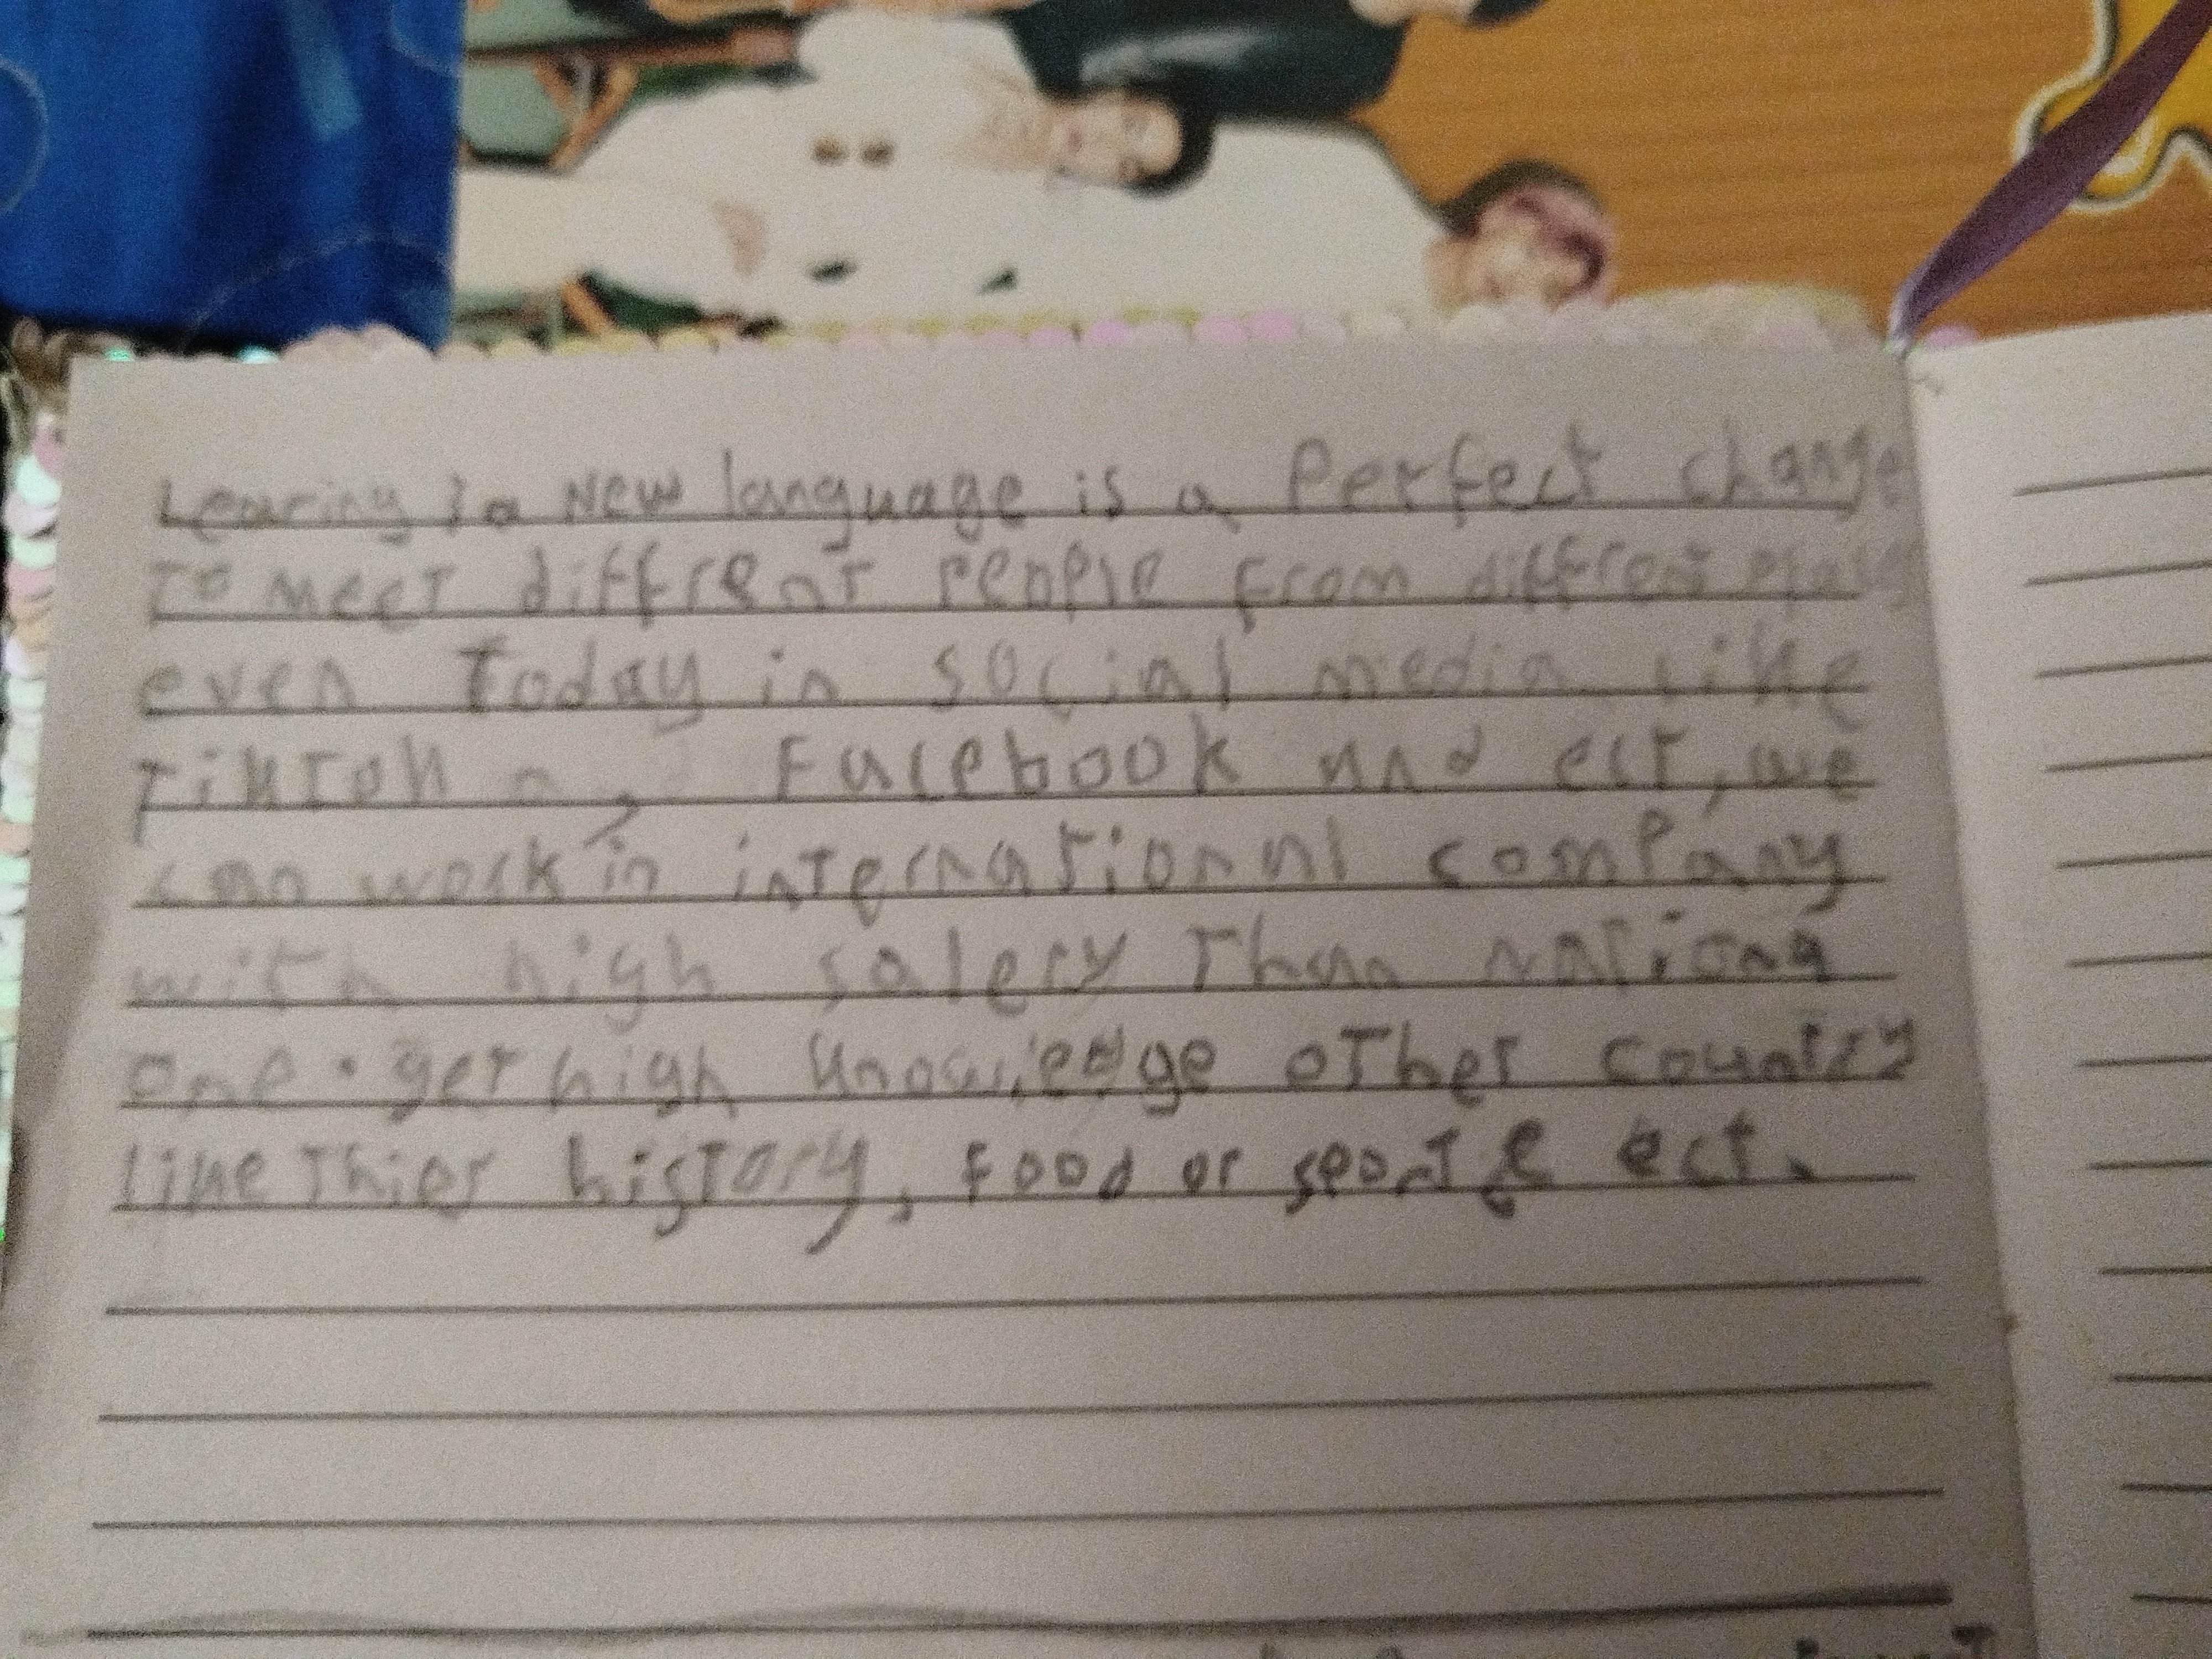 Learing a New language is a Perfect change
To meet diffrent People from diffrent places
even Today in social media like
TikTok, Facebook and ect, we
can work in international company
with high salery Than nationa
one. get high knowledge other country
like Thier history, Food or sport ect.